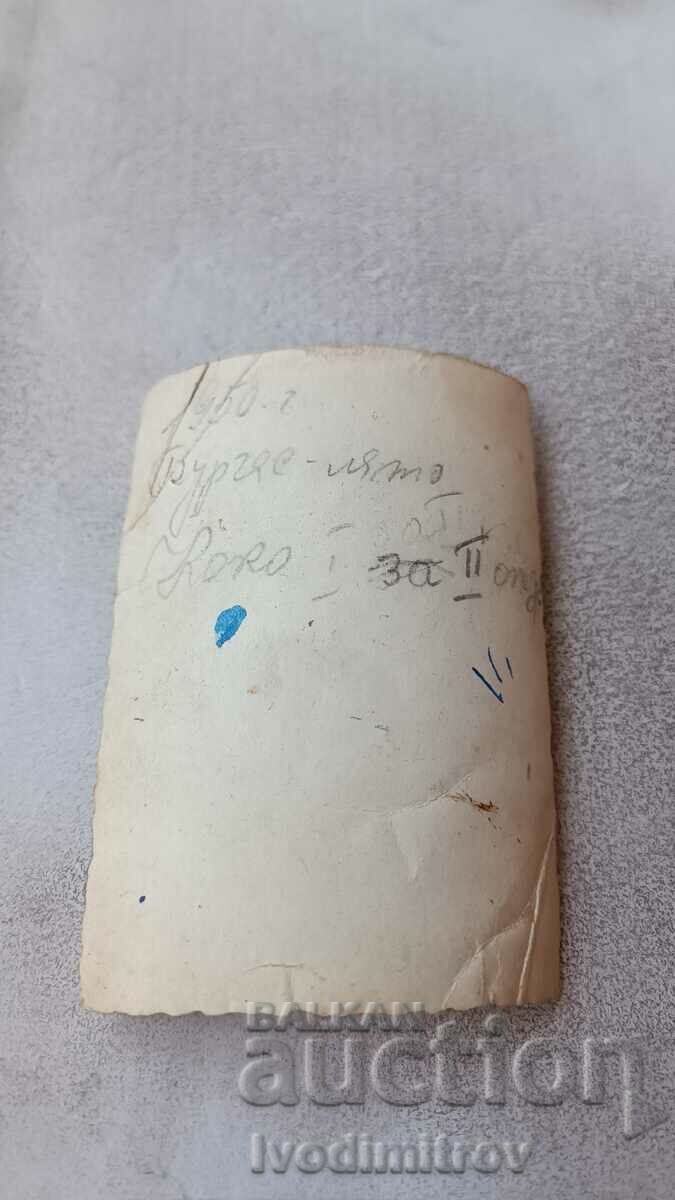 1960-г
Бургас-лято
Коко I за II
BALKAN
auction
Ivodimitrov